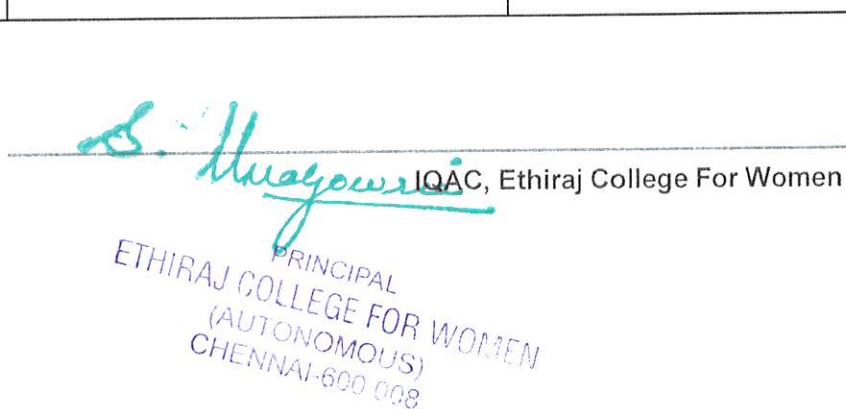 S. Umagowrie
IQAC, Ethiraj College For Women
PRINCIPAL
ETHIRAJ COLLEGE FOR WOMEN
(AUTONOMOUS)
CHENNAI-600 008